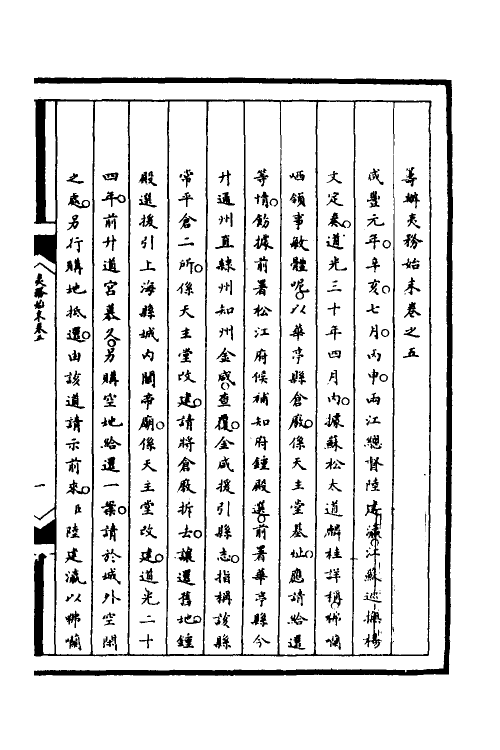 籌辦夷務始末卷之五
咸豐元年。辛亥。七月。丙申。兩江總督陸建瀛。江蘇巡撫楊
文定奏。道光三十年四月內。據蘇松太道麟桂詳稱。咈囒
哂領事敏體呢。以華亭縣倉廒。係天主堂基址。應請給還
等情。飭據前署松江府候補知府鍾殿選。前署華亭縣今
升通州直隸州知州金咸查覆。金咸援引縣志。指稱該縣
常平倉二所。係天主堂改建。請將倉廒拆去。讓還舊地。鍾
殿選援引上海縣城內關帝廟。係天主堂改建。道光二十
四年。前升道宮慕久。另購空地給還一案。請於城外空閒
之處。另行購地抵還。由該道請示前來。臣陸建瀛以咈囒
夷務始末卷五
一